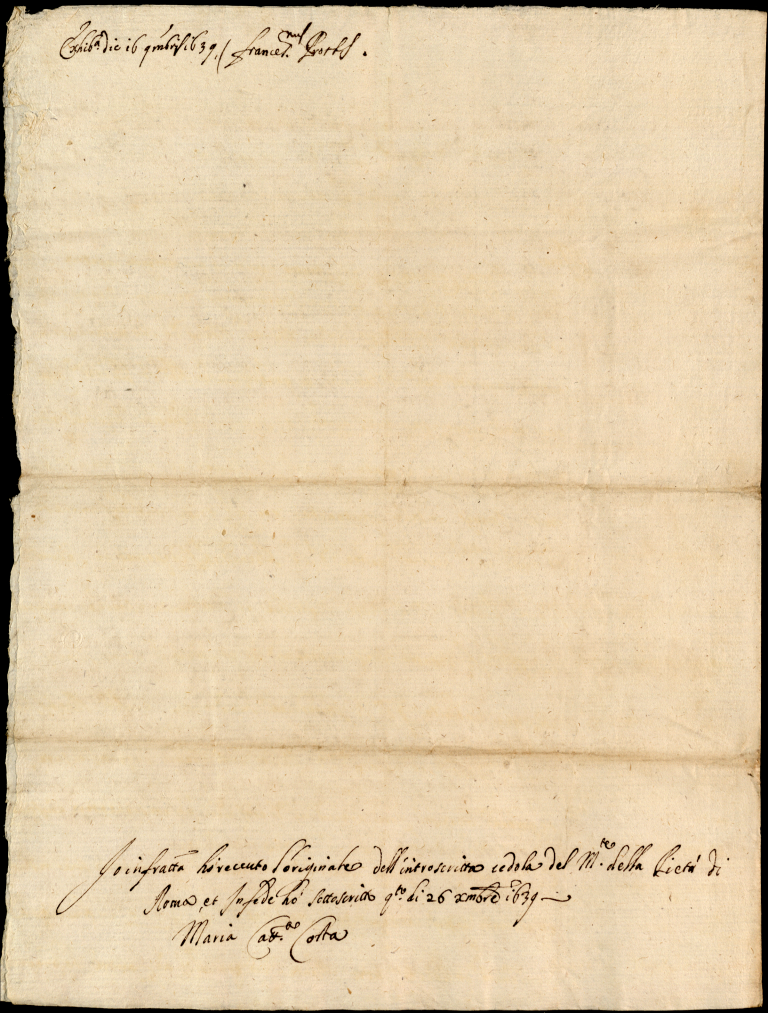 Exhib.ta die 16 9mbris 1639 / Frances.
Jo infratta ho receuto l'originale dell'introscritta cedola del M.te della Pietà di
Roma, et In fede ho sottoscritto q.to di 26 xmbre 1639
Maria Catt.na Costa